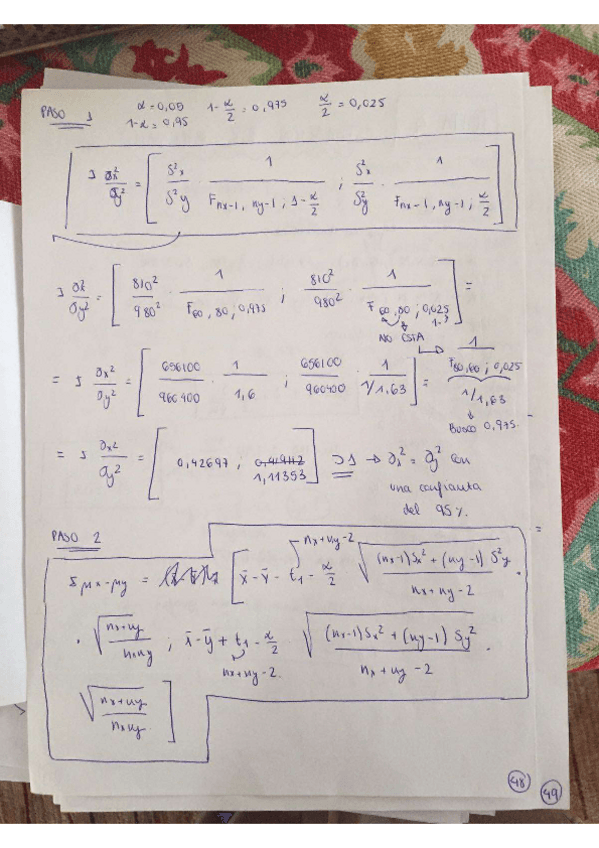 PASO 1 α = 0,05 1 - α/2 = 0,975 α/2 = 0,025
1 - α = 0,95
I σx²/σy² = [ S²x/S²y · 1/F nx-1, ny-1; 1 - α/2 ; S²x/S²y · 1/F nx-1, ny-1; α/2 ]
I σx²/σy² = [ 810²/980² · 1/F 60, 80; 0,975 ; 810²/980² · 1/F 60, 80; 0,025 ] =
NO ESTÁ
1/F 80,60; 0,025
= I σx²/σy² = [ 656100/960400 · 1/1,6 ; 656100/960400 · 1/1/1,63 ] = 1/1,63
BUSCO 0,975.
= I σx²/σy² = [ 0,42697 ; 1,11353 ] ⊃ 1 → σx² = σy² con
una confianza
del 95%.
PASO 2
I μx-μy = [ x̄ - ȳ - t1 - α/2 nx+ny-2 √((nx-1)Sx² + (ny-1)S²y / nx+ny-2) ·
· √(nx+ny / nxny) ; x̄ - ȳ + t1 - α/2 nx+ny-2. √((nx-1)Sx² + (ny-1)Sy² / nx+ny-2) ·
√(nx+ny / nxny) ]
48 49